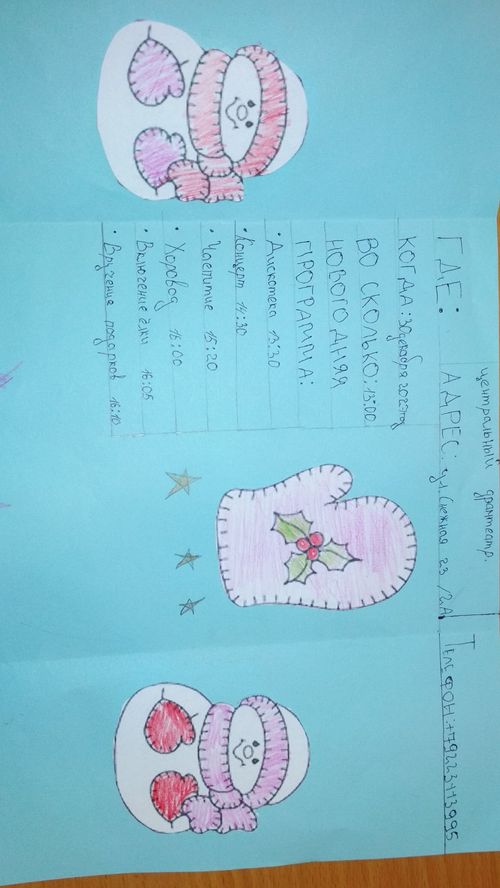 центральный драмтеатр.
ГДЕ: АДРЕС: ул. Снежная 23/2А Телефон: +79223113995
КОГДА: 30 декабря 2023 год
ВО СКОЛЬКО: 13:00.
НОВОГО ДНЯЯ
ПРОГРАММА:
• Дискотека 13:30
• Концерт 14:30
• Чаепитие 15:20
• Хоровод 16:00
• Включение ёлки 16:05
• Вручение подарков 16:10